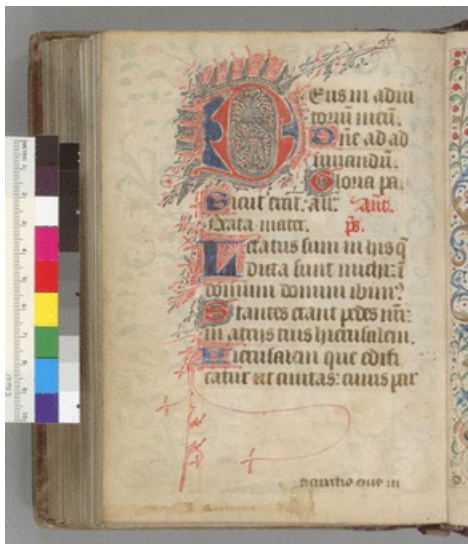 Deus in adiu
toriu meū.
Dn̄e ad ad
iuuandū.
Gloria pa.
Sicut erat. añ. Anͭ.
Beata mater. p̄s.
Letatus sum in his q̄
dicta sunt michi: ī
domum domini ibimꝰ
Stantes erant pedes nr̄i:
in atrijs tuis hierusalem.
Hierusalem que edifi
catur ut ciuitas: cuius par
ticipatio eius in